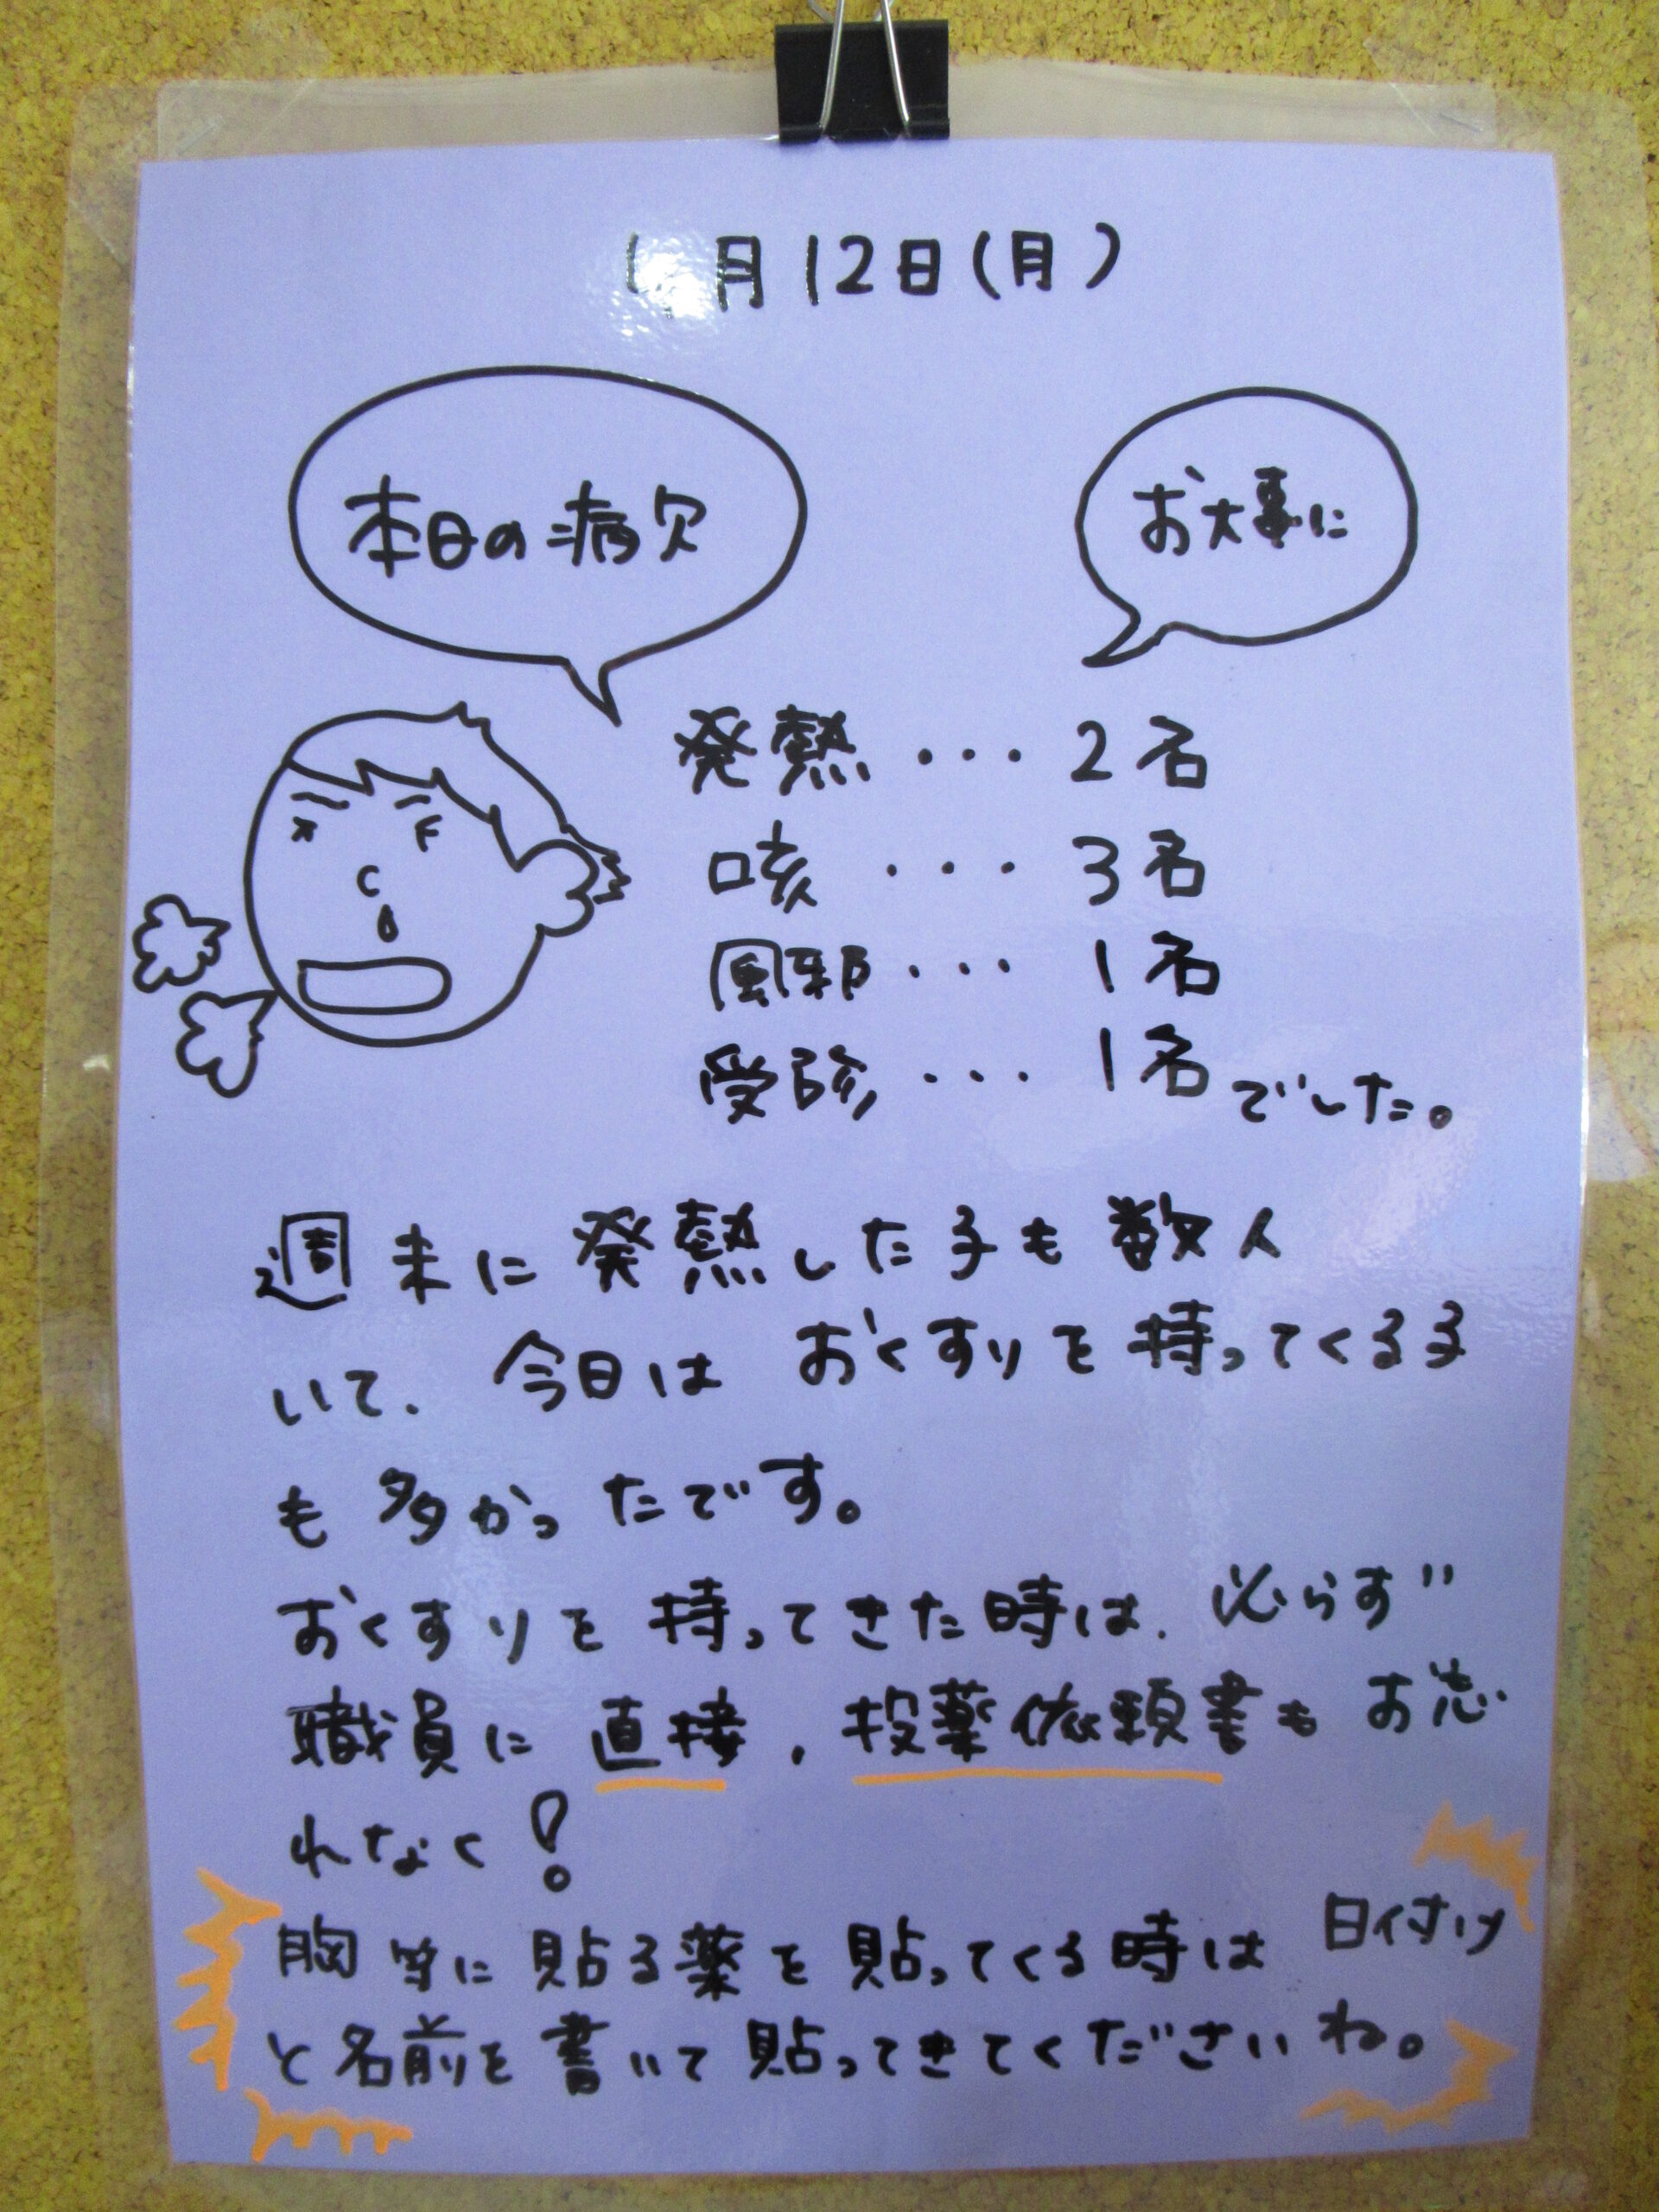 月12日(月)
本日の病欠
お大事に
発熱・・・2名
咳・・・3名
風邪・・・1名
受診・・・1名でした。
週末に発熱した子も数人
いて、今日はおくすりを持ってくる子
も多かったです。
おくすりを持ってきた時は、必らず
職員に直接、投薬依頼書もお忘
れなく!
胸等に貼る薬を貼ってくる時は日付け
と名前を書いて貼ってきてくださいね。